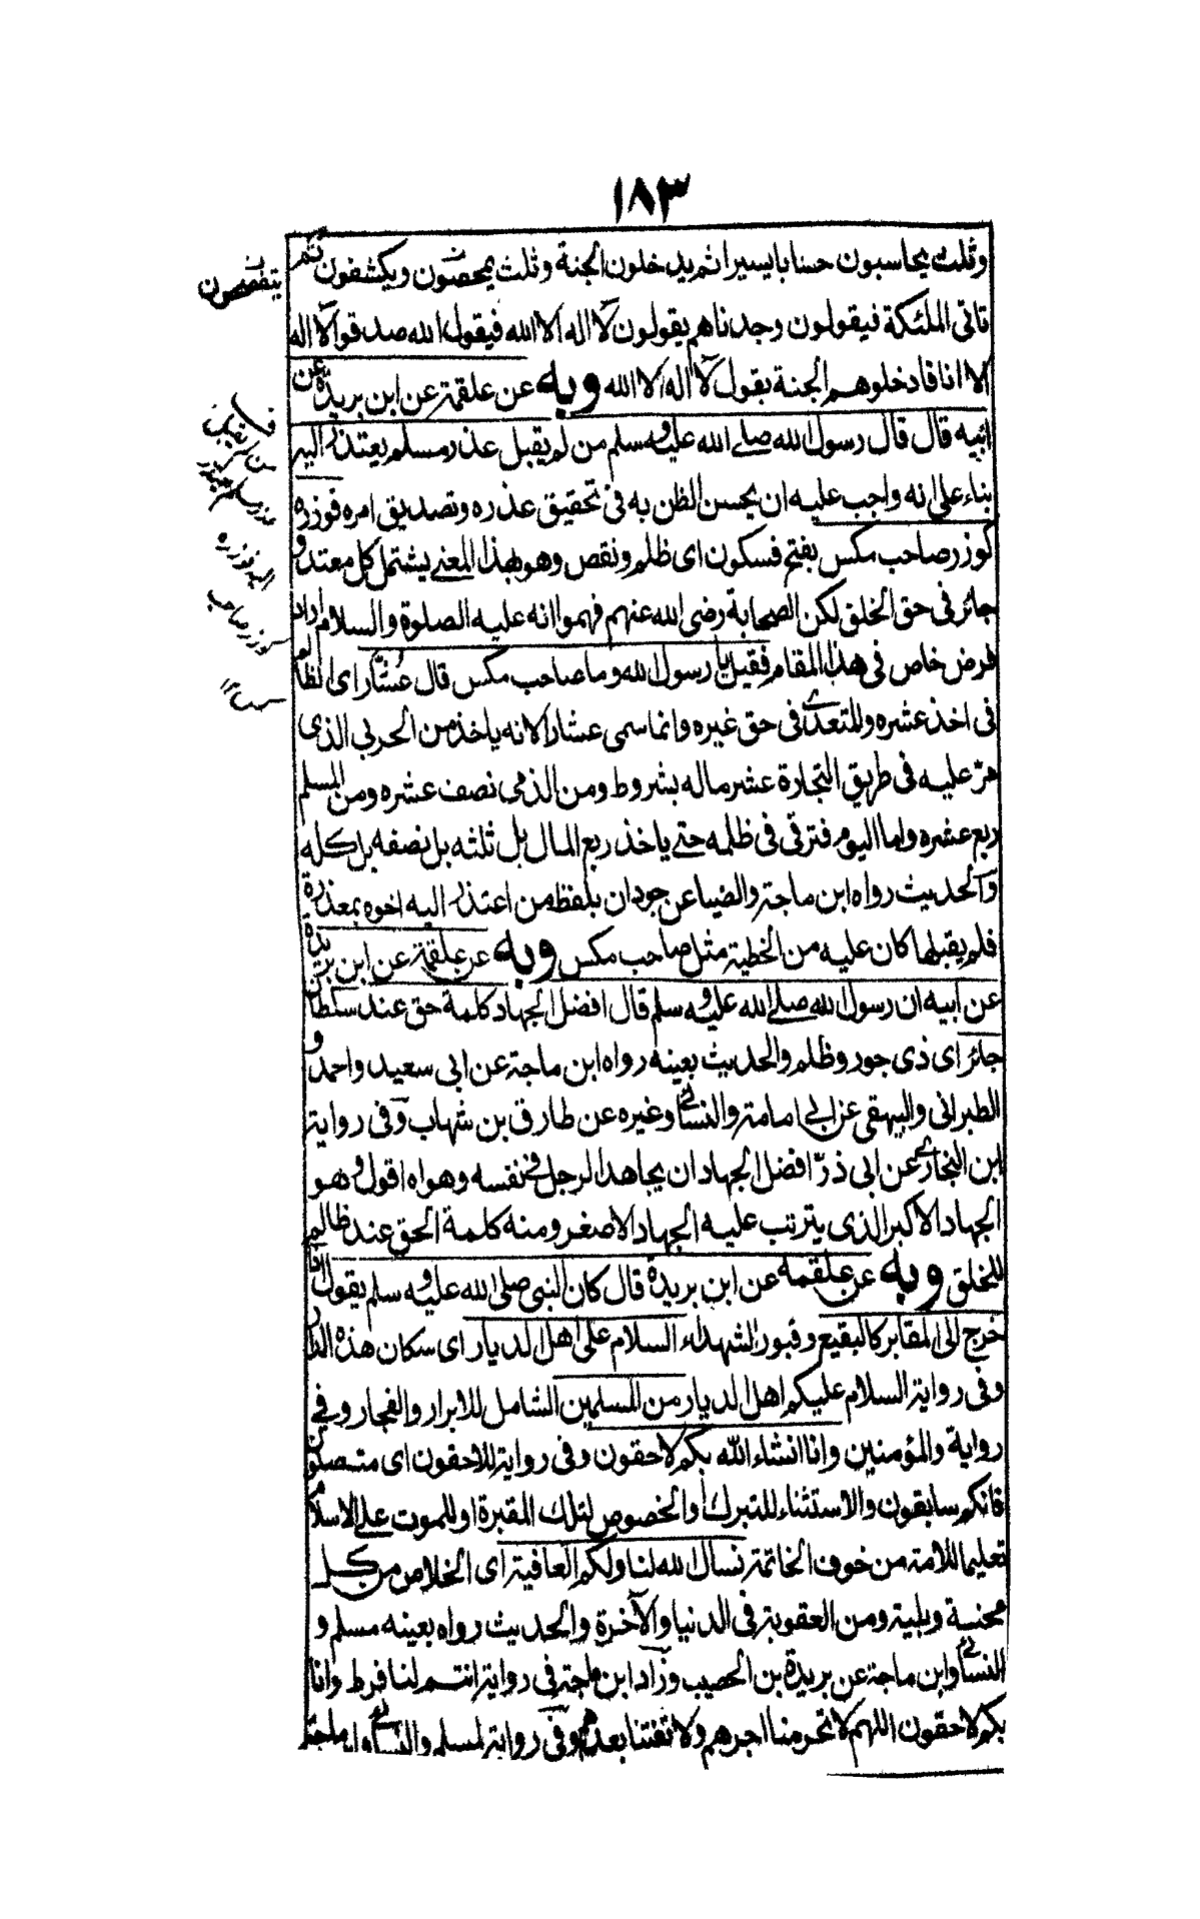 ١٨٣
وثلث يحاسبون حسابا يسيرا ثم يدخلون الجنة وثلث يمحصون ويكشفون ثم
يتفصصون
تاتى الملئكة فيقولون وجدناهم يقولون لا اله الا الله فيقول الله صدقوا لا اله
الا انا فادخلوهم الجنة بقول لا اله الا الله وبه عن علقمة عن ابن بريدة عن
ابيه قال قال رسول الله صلى الله عليه وسلم من لم يقبل عذر مسلم يعتذر اليه
بناء على انه واجب عليه ان يحسن الظن به فى تحقيق عذره وتصديق امره فوزره
كوزر صاحب مكس بفتح فسكون اى ظلم ونقص وهو بهذا المعنى يشتمل كل معتد و
جائر فى حق الخلق لكن الصحابة رضى الله عنهم فهموا انه عليه الصلوة والسلام اراد
فرض خاص فى هذا المقام فقيل يا رسول الله وما صاحب مكس قال عشّار اى الظالم
فى اخذ عشره والمتعدى فى حق غيره وانما سمى عشارا لانه ياخذ من الحربى الذى
مرّ عليه فى طريق التجارة عشر ماله بشروط ومن الذمى نصف عشره ومن المسلم
ربع عشره واما اليوم فترقى فى ظلمه حتى ياخذ ربع المال بل ثلثه بل نصفه بل كله
والحديث رواه ابن ماجة والضيا عن جودان بلفظ من اعتذر اليه اخوه بمعذرة
فلم يقبلها كان عليه من الخطية مثل صاحب مكس وبه عن علقمة عن ابن بريدة
عن ابيه ان رسول الله صلى الله عليه وسلم قال افضل الجهاد كلمة حق عند سلطان
جائر اى ذى جور وظلم والحديث بعينه رواه ابن ماجة عن ابى سعيد واحمد و
الطبرانى والبيهقى عن ابى امامة والنسائى وغيره عن طارق بن شهاب وفى رواية
ابن النجار عن ابى ذرّ افضل الجهاد ان يجاهد الرجل فى نفسه وهواه اقول وهو
الجهاد الاكبر الذى يترتب عليه الجهاد الاصغر ومنه كلمة الحق عند ظالم
للخلق وبه عن علقمه عن ابن بريدة قال كان النبى صلى الله عليه وسلم يقول اذا
خرج الى المقابر كالبقيع وقبور الشهداء السلام على اهل الديار اى سكان هذه الدار
وفى رواية السلام عليكم اهل الديار من المسلمين الشامل للابرار والفجار وفى
رواية والمؤمنين وانا انشاء الله بكم لاحقون وفى رواية للاحقون اى متصلون
فانكم سابقون والاستثناء للتبرك او الخصوص لتلك المقبرة او للموت على الاسلام
تعليما للامة من خوف الخاتمة نسال الله لنا ولكم العافية اى الخلاص من كل
محنسة وبلية ومن العقوبة فى الدنيا والآخرة والحديث رواه بعينه مسلم و
النسائى وابن ماجة عن بريدة بن الحصيب وزاد ابن ماجة فى رواية انتم لنا فرط وانا
بكم لاحقون اللهم لا تحرمنا اجرهم ولا تفتنا بعدهم وفى رواية لمسلم والنسائى وابن ماجة